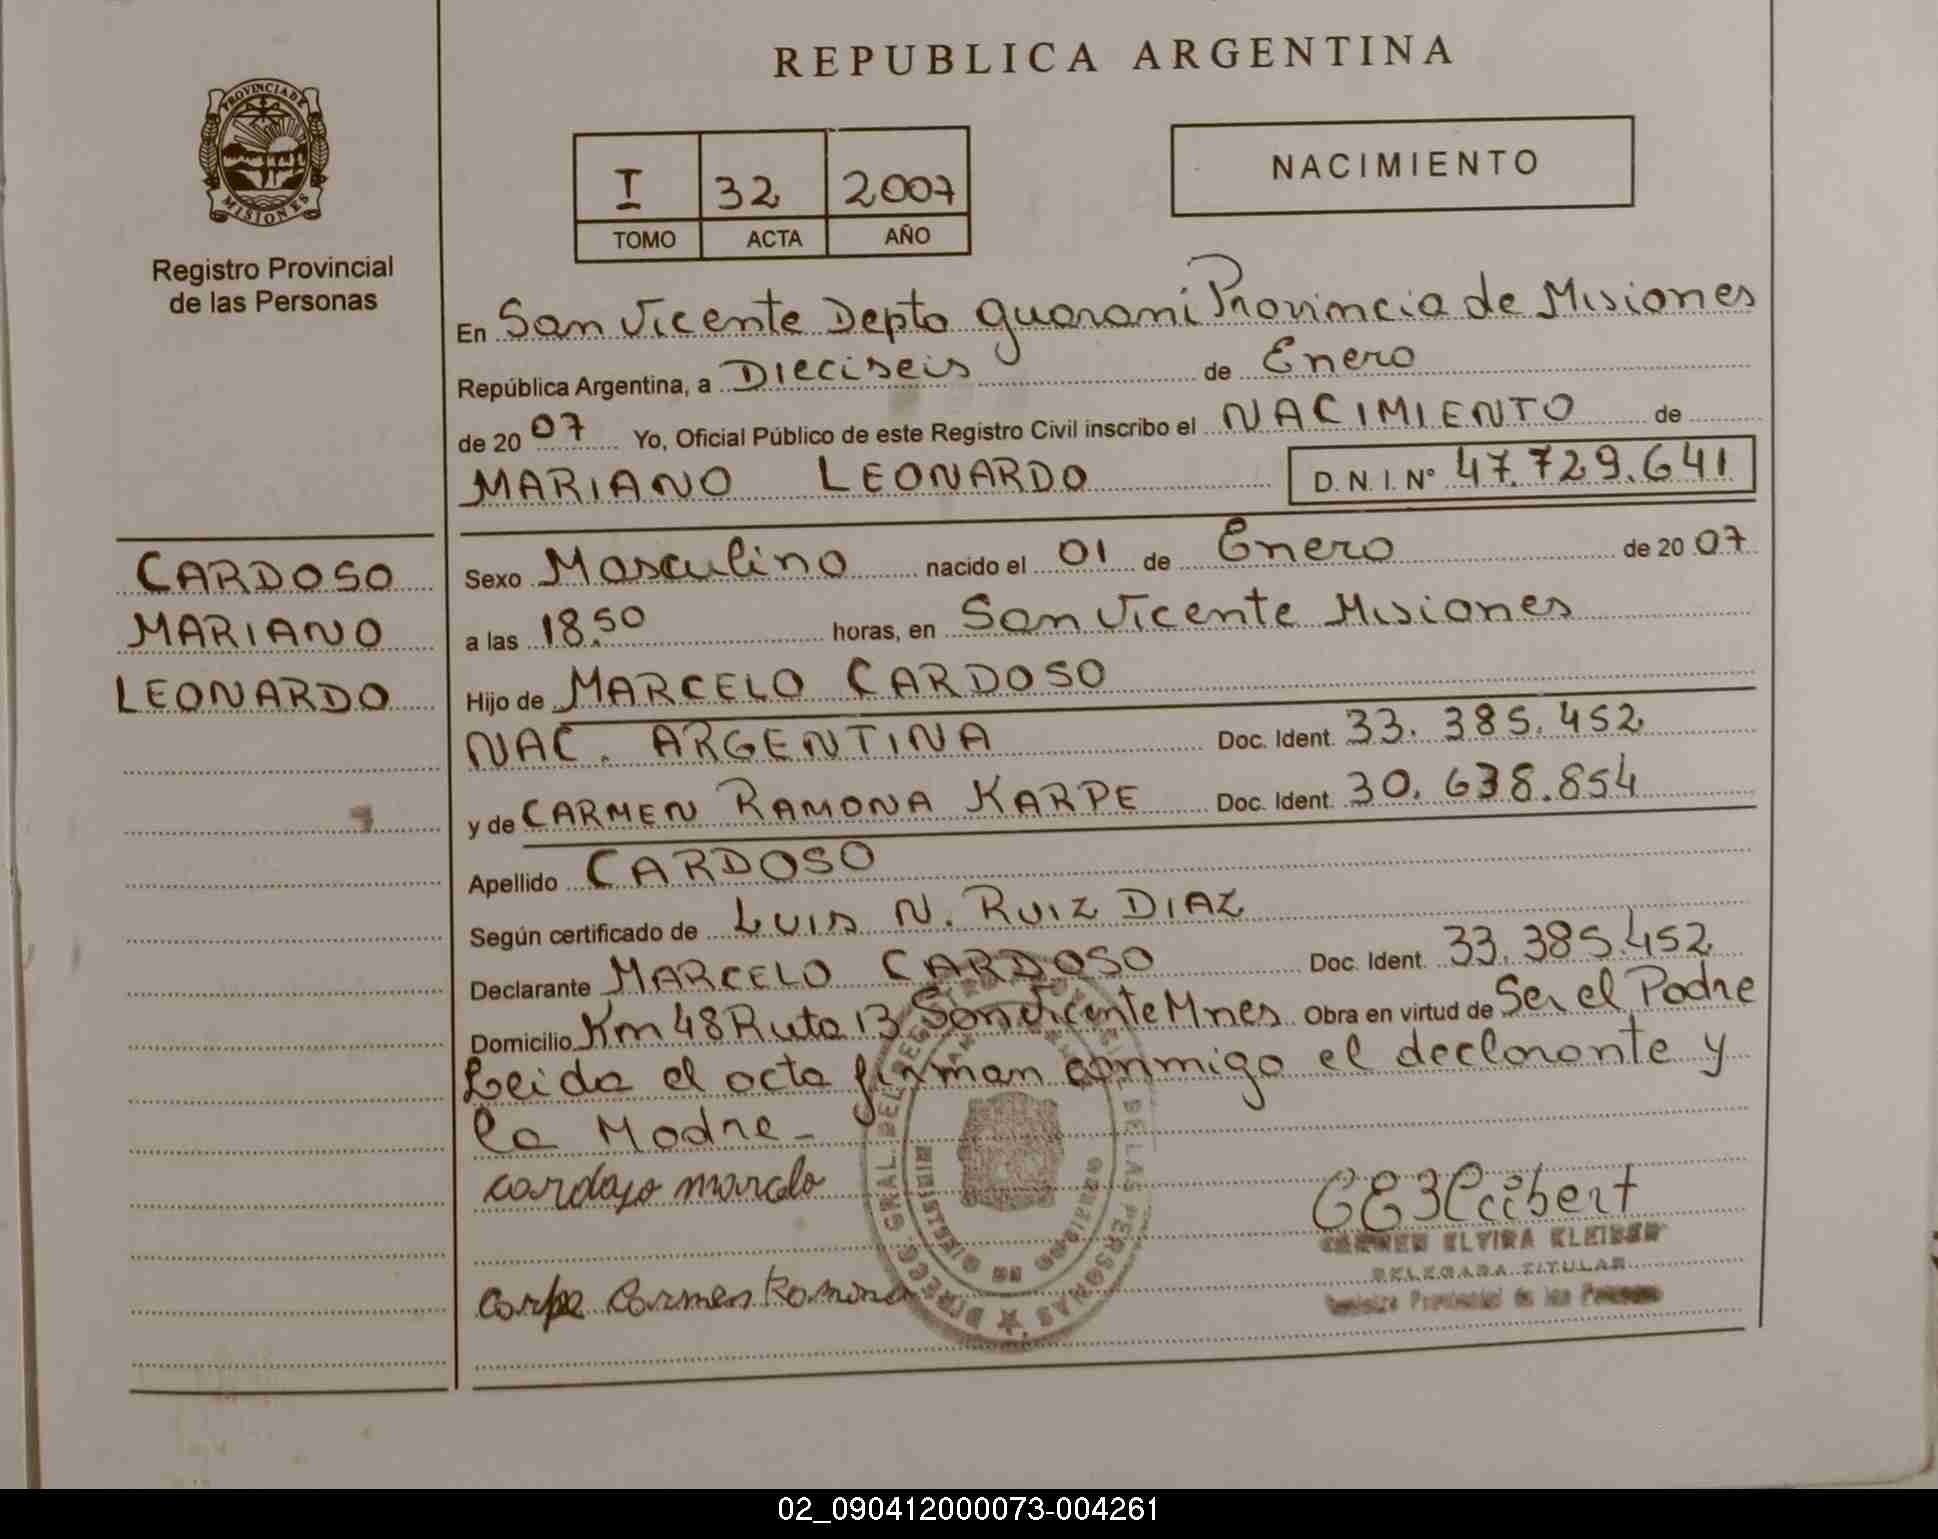 REPUBLICA ARGENTINA
PROVINCIA DE
MISIONES
Registro Provincial
de las Personas
I 32 2007
TOMO ACTA AÑO
NACIMIENTO
En San Vicente Depto Guarani Provincia de Misiones
República Argentina, a Dieciseis de Enero
de 2007 Yo, Oficial Público de este Registro Civil inscribo el NACIMIENTO de
MARIANO LEONARDO D. N. I. Nº 47.729.641
CARDOSO
MARIANO
LEONARDO
Sexo Masculino nacido el 01 de Enero de 2007
a las 18.50 horas, en San Vicente Misiones
Hijo de MARCELO CARDOSO
NAC. ARGENTINA Doc. Ident. 33.385.452
y de CARMEN RAMONA KARPE Doc. Ident. 30.638.854
Apellido CARDOSO
Según certificado de LUIS N. RUIZ DIAZ
Declarante MARCELO CARDOSO Doc. Ident. 33.385.452
Domicilio Km 48 Ruta 13 San Vicente Mnes Obra en virtud de Ser el Padre
Leida el acta firman conmigo el declarante y
la Madre-
cardoso marcelo
CARMEN ELVIRA KLEIBER
DELEGADA TITULAR
Registro Provincial de las Personas
carpe Carmen Ramona
DIRECC. GRAL. DEL REGISTRO PROVINCIAL DE LAS PERSONAS
MINISTERIO DE GOBIERNO
02_090412000073-004261